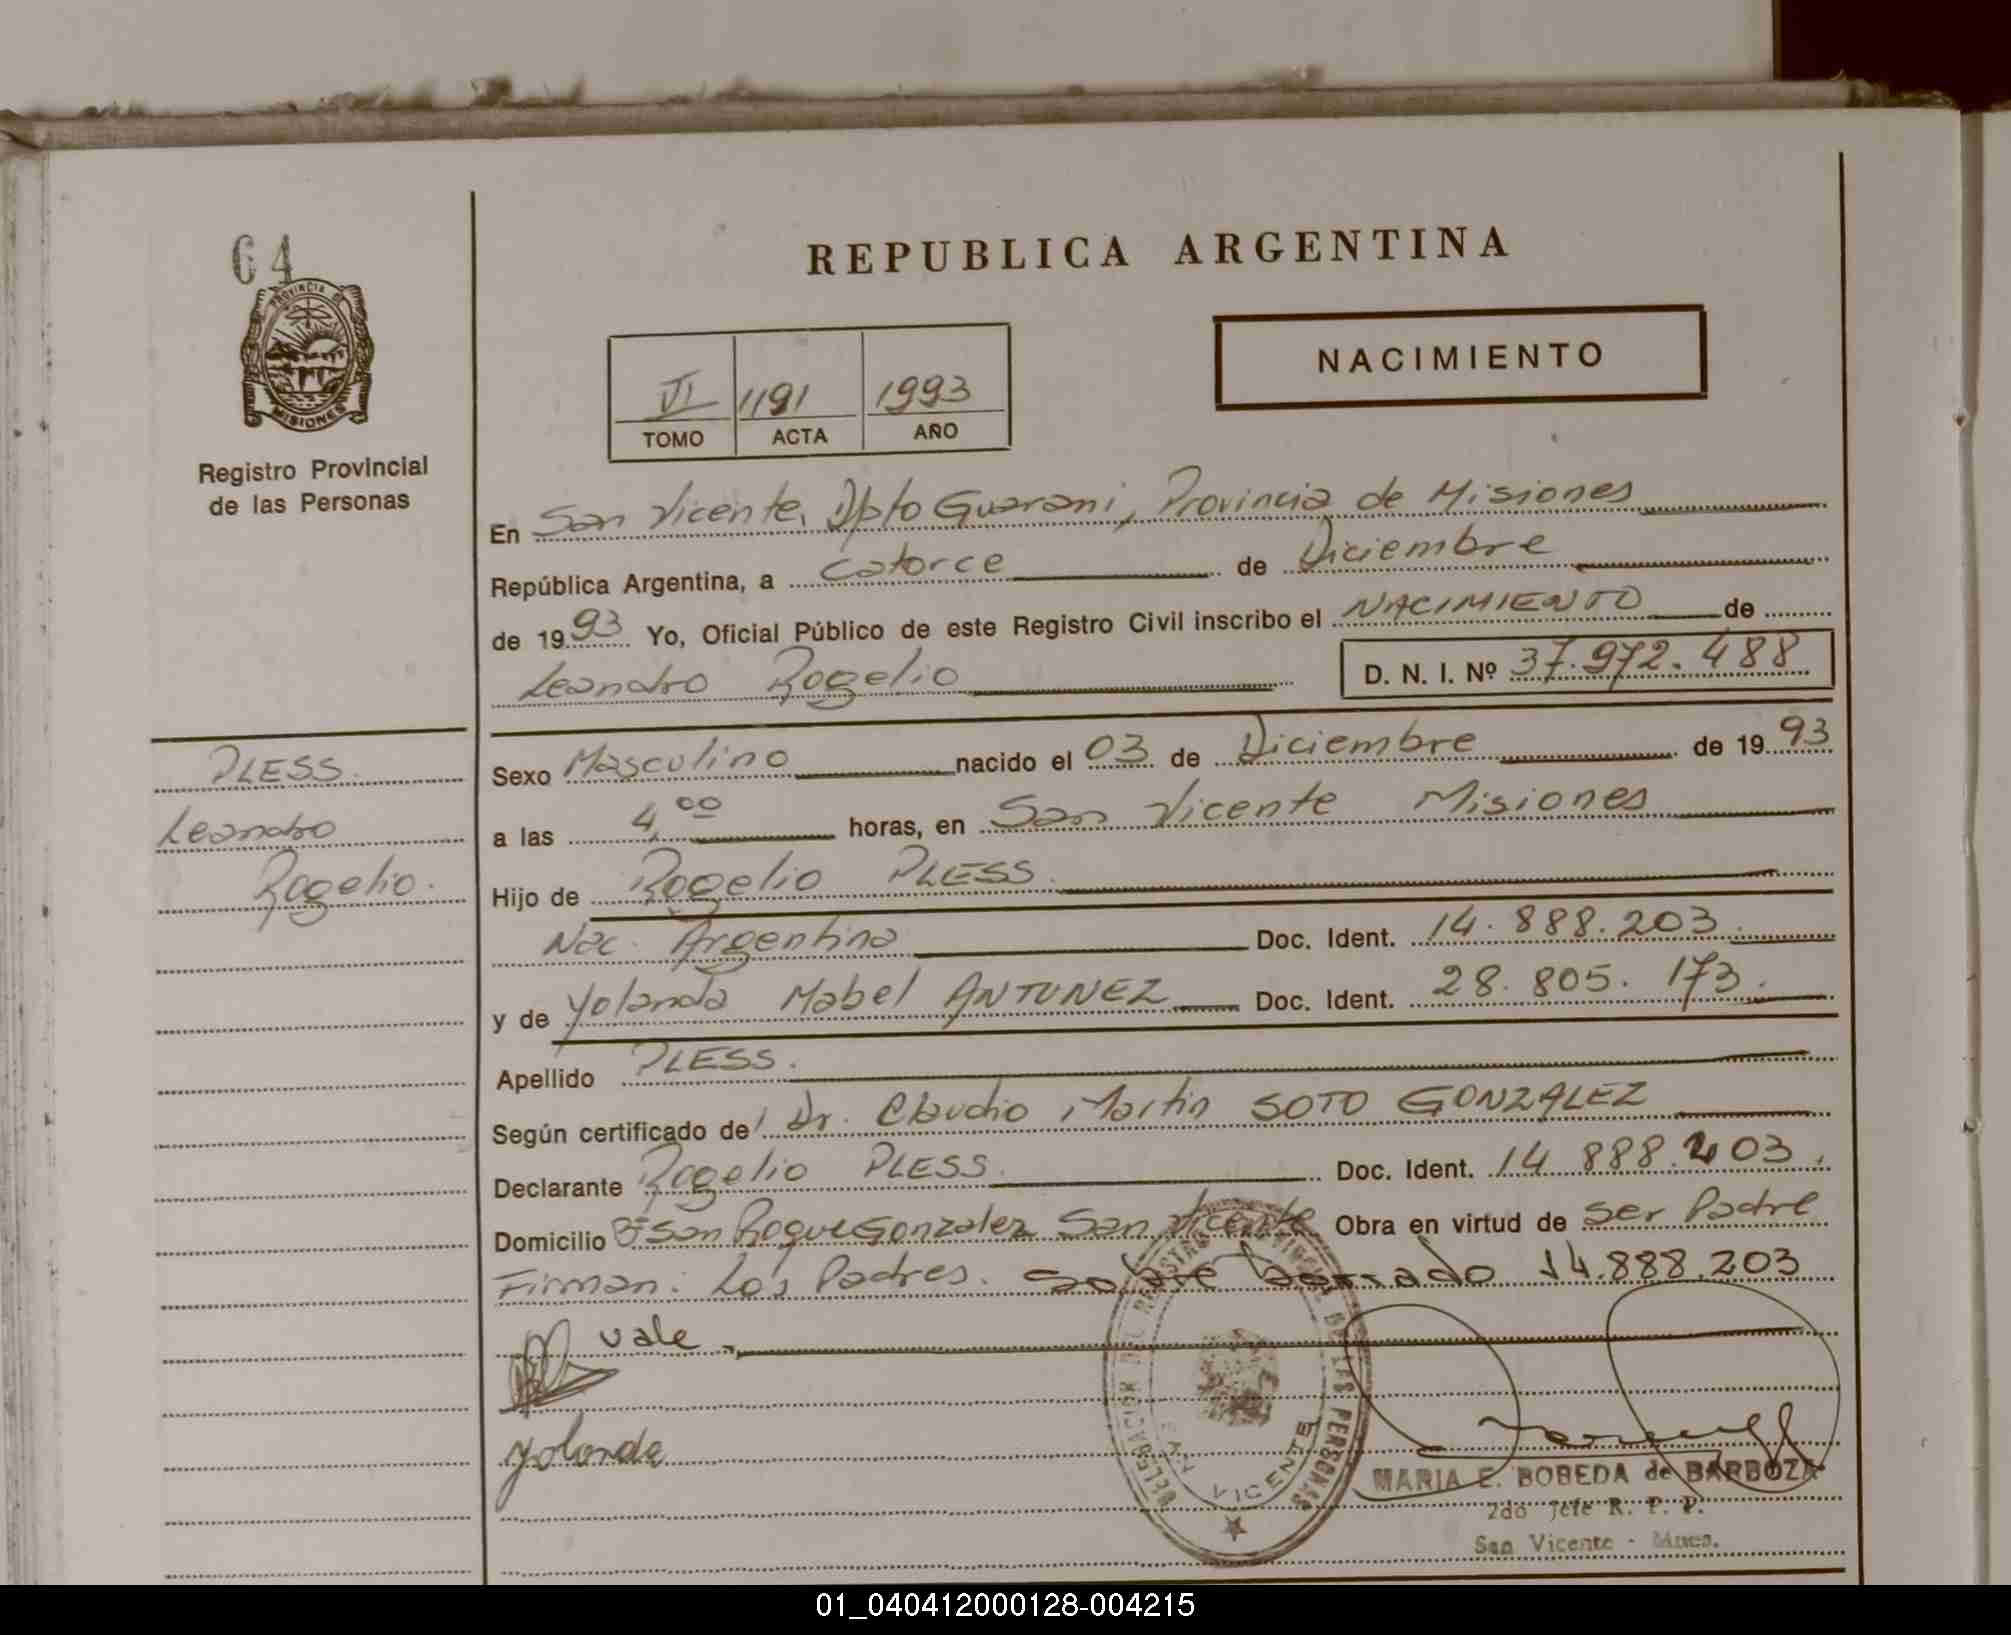 64
PROVINCIA DE
MISIONES
Registro Provincial
de las Personas
REPUBLICA ARGENTINA
VI 1191 1993
TOMO ACTA AÑO
NACIMIENTO
En San Vicente, Dpto Guarani, Provincia de Misiones
República Argentina, a catorce de Diciembre
de 1993 Yo, Oficial Público de este Registro Civil inscribo el NACIMIENTO de
Leandro Rogelio D. N. I. Nº 37.972.488
PLESS.
Leandro
Rogelio.
Sexo Masculino nacido el 03 de Diciembre de 1993
a las 4,00 horas, en San Vicente Misiones
Hijo de Rogelio PLESS.
Nac. Argentina Doc. Ident. 14.888.203.
y de Yolanda Mabel ANTUNEZ Doc. Ident. 28.805.173.
Apellido PLESS.
Según certificado de Dr. Claudio Martin SOTO GONZALEZ
Declarante Rogelio PLESS. Doc. Ident. 14 888.203.
Domicilio Bº San Roque Gonzalez San Vicente Obra en virtud de ser Padre
Firman: Los Padres. Sobre borrado 14.888.203
vale
Yolanda
DELEGACION DEL REGISTRO PROVINCIAL DE LAS PERSONAS
SAN VICENTE
MARIA E. BOBEDA de BARBOZA
2do Jefe R. P. P.
San Vicente - Mnes.
01_040412000128-004215